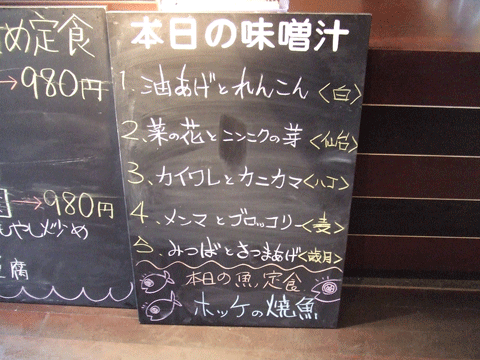 め定食
→980円
→980円
もやし炒め
豆腐
本日の味噌汁
1. 油あげとれんこん <白>
2. 菜の花とニンニクの芽 <仙台>
3、カイワレとカニカマ <ハコ>
4、メンマとブロッコリ <麦>
5、みつばとさつまあげ <歳月>
本日の魚定食
ホッケの焼魚